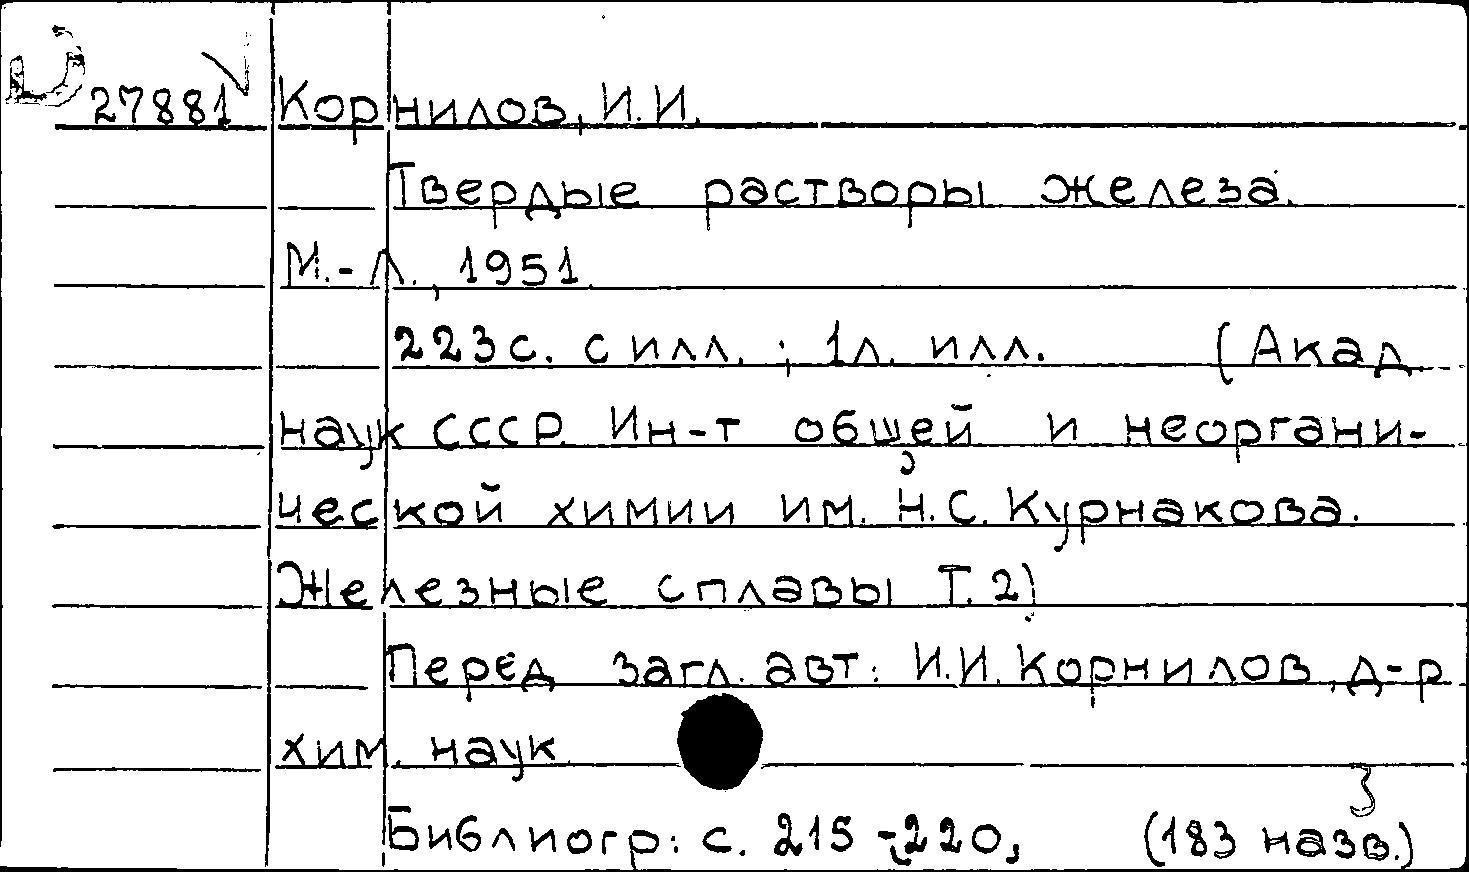 D 27881 Корнилов, И.И.
Твердые растворы железа.
М.-Л., 1951.
223с. с илл. ; 1л. илл. (Акад.
наук СССР. Ин-т общей и неоргани-
ческой химии им. Н.С. Курнакова.
Железные сплавы Т. 2)
Перед загл. авт.: И.И. Корнилов, д-р
хим. наук
3
Библиогр: с. 215-220, (183 назв.)